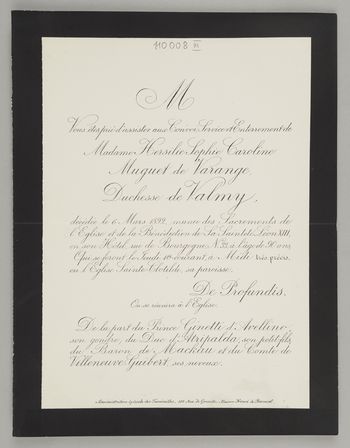 110008
M
Vous êtes prié d'assister aux Convoi, Service et Enterrement de
Madame Hersilie Sophie Caroline
Muguet de Varange,
Duchesse de Valmy,
décédée le 6 Mars 1892, munie des Sacrements de
l'Eglise et de la Bénédiction de Sa Sainteté Léon XIII,
en son Hôtel, rue de Bourgogne, à l'âge de 90 ans,
Qui se feront le Jeudi 10 courant, à Midi très précis,
en l'Eglise Sainte Clotilde, sa paroisse.
De Profundis.
On se réunira à l'Eglise.
De la part du Prince Ginetti d'Avellino,
son gendre, du Duc d'Atripalda, son petit fils,
du Baron de Mackau et du Comte de
Villeneuve Guibert, ses neveux.
Administration spéciale des Funérailles, Rue de Grenelle, Maison Henri de Borniol